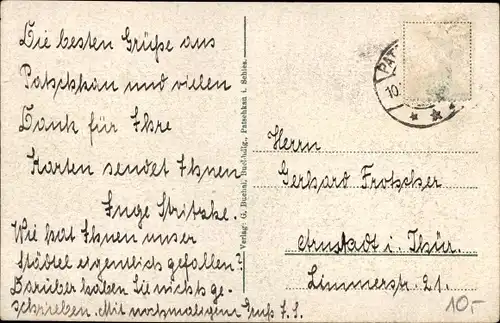 Die besten Grüße aus
Patschkau und vielen
Dank für Ihre
Karten sendet Ihnen
Inge Stritzke.
Wie hat Ihnen unser
Städtel eigentlich gefallen?
Darüber haben Sie nichts ge-
schrieben. Mit nochmaligem Gruß I. S.
Verlag: G. Buchal, Buchhdlg., Patschkau i. Schles.
PATS
10.
Herrn
Gerhard Frotscher
Arnstadt i. Thür.
Limmerstr. 21.
10,-